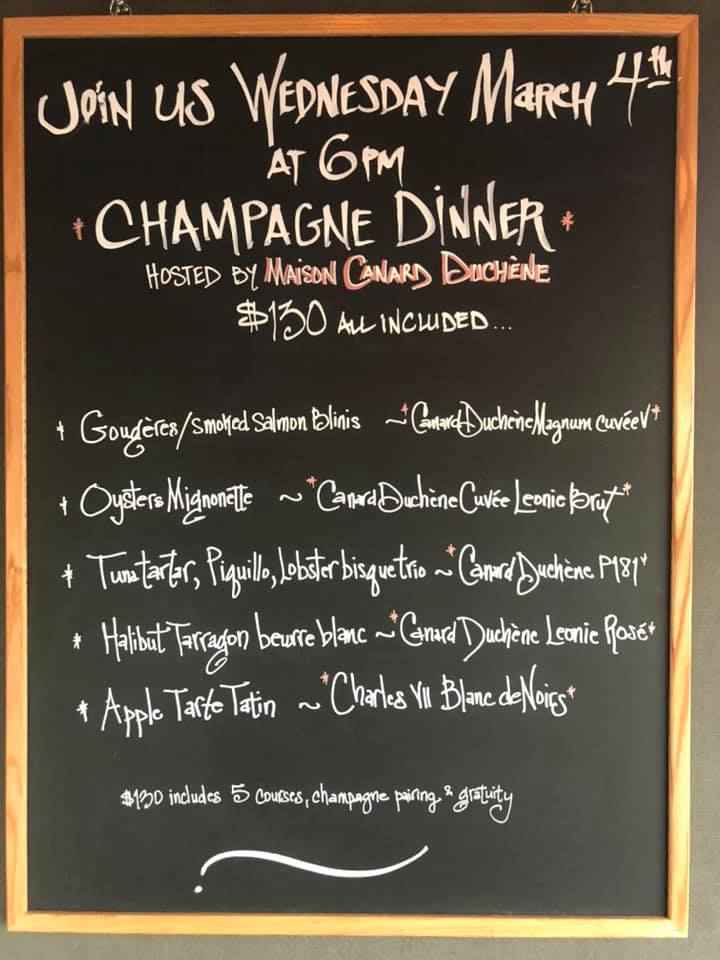 Join us Wednesday March 4th
at 6pm
* Champagne Dinner *
Hosted by Maison Canard Duchêne
$130 all included...
* Gougères/Smoked Salmon Blinis ~ *Canard Duchêne Magnum cuvée V*
* Oysters Mignonette ~ *Canard Duchêne Cuvée Leonie Brut*
* Tuna tartar, Piquillo, Lobster bisque trio ~ *Canard Duchène P181*
* Halibut Tarragon beurre blanc ~ *Canard Duchène Leonie Rosé*
* Apple Tarte Tatin ~ *Charles VII Blanc de Noirs*
$130 includes 5 courses, champagne pairing & gratuity